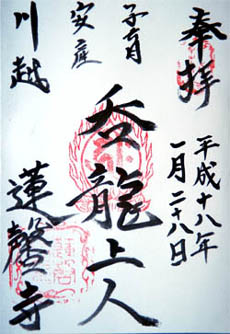 奉拝
平成十八年
一月二十八日
子育
安産
呑龍上人
川越
蓮馨寺